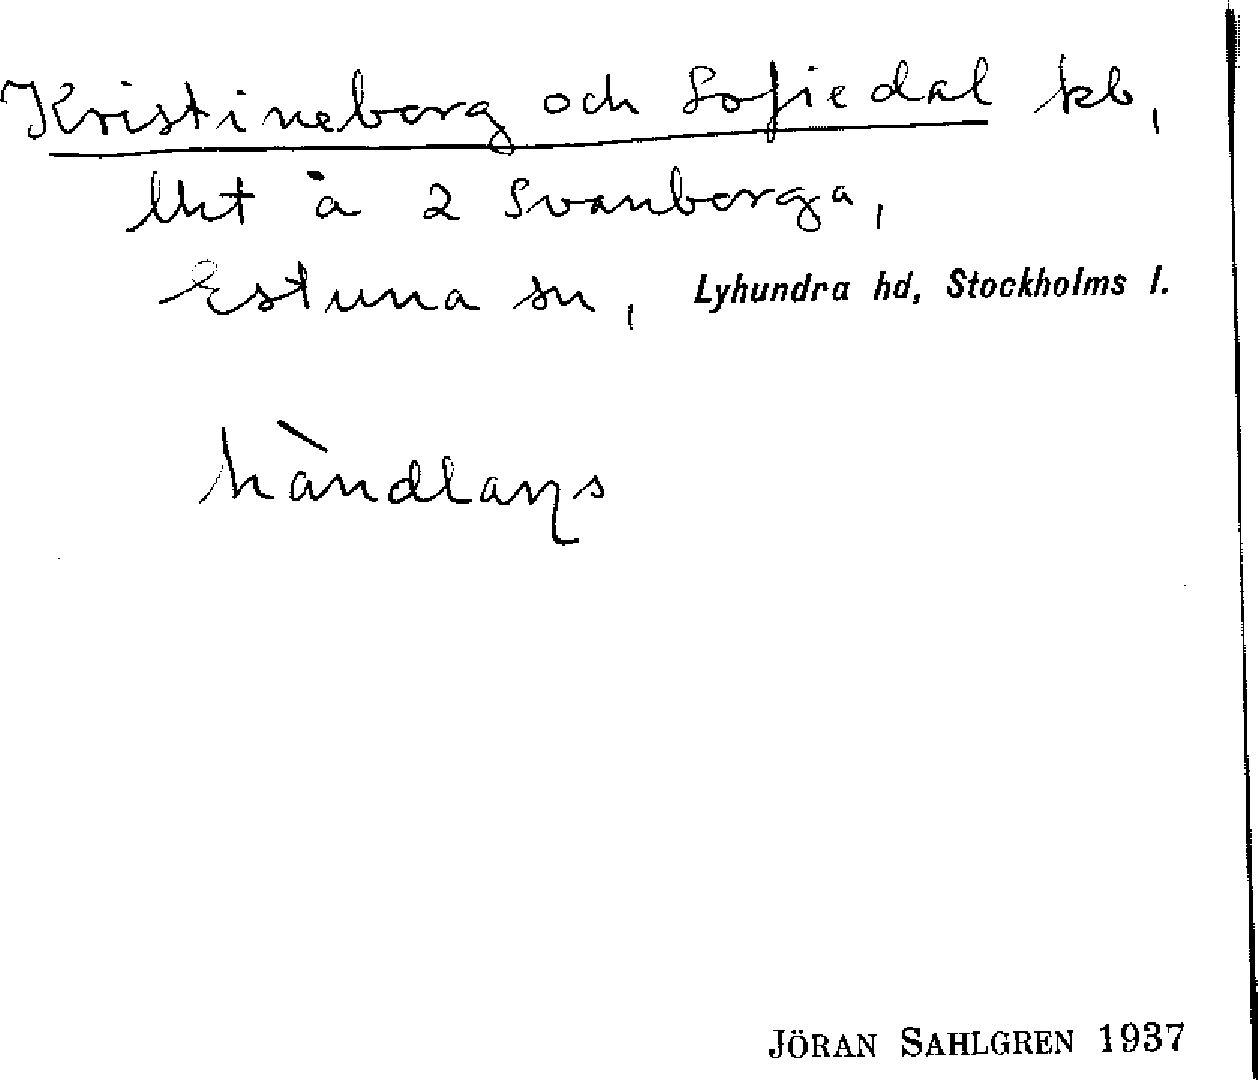 Kristineborg och Sofiedal kb,
lht å 2 Svanberga,
Estuna sn, Lyhundra hd, Stockholms l.
hàndlaɳs
JÖRAN SAHLGREN 1937